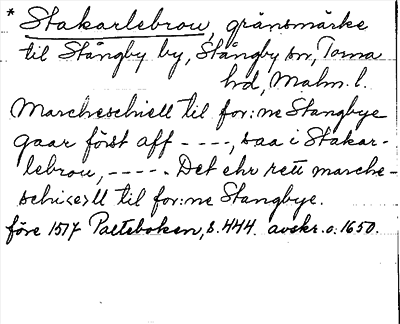 * Stakarlebrou, gränsmärke
til Stångby by, Stångby sn, Torna
hd, Malm. l.
Marcheschiell til for:ne Stangbye
gaar först aff - - - -, saa i Stakar-
lebrou, - - - - -. Det ehr rett marche-
schi<e>ll til for:ne Stangbye.
före 1517 Palteboken, s. 444. avskr. o. 1650.